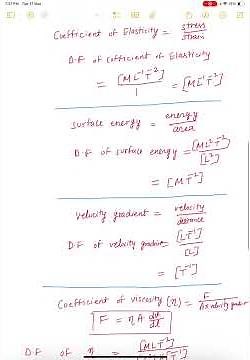 Coefficient of Elasticity = stress / strain
D.F of cofficient of Elasticity
= [ML⁻¹T⁻²] / 1 = [ML⁻¹T⁻²]
surface energy = energy / area
D.F of surface energy = [ML²T⁻²] / [L²]
= [MT⁻²]
velocity gradient = velocity / distance
D.F of velocity gradient = [LT⁻¹] / [L]
= [T⁻¹]
Coefficient of viscosity (η) = F
F = η A dv/dt
D.F of η =